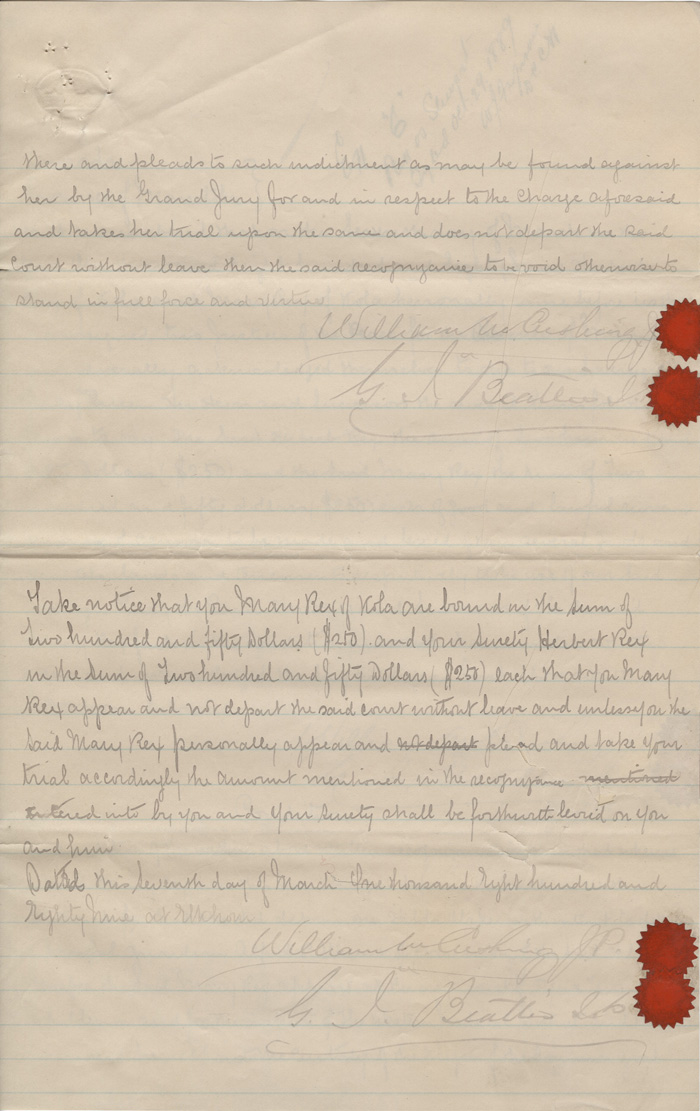 there and pleads to such indictment as may be found against
her by the Grand Jury for and in respect to the Charge aforesaid
and takes her trial upon the same and does not depart the said
Court without leave then the said recognizance to be void otherwise to
stand in full force and virtue
William McCushing J
G. J. Beattie J
Take notice that you Mary Rex of Kola are bound in the sum of
Two hundred and fifty Dollars ($250) and your surety Herbert Rex
in the Sum of Two hundred and fifty Dollars ($250) each that you Mary
Rex appear and not depart the said court without leave and unless you the
said Mary Rex personally appear and not depart plead and take your
trial accordingly the amount mentioned in the recognizance mentioned
entered into by you and your surety shall be forthwith levied on you
and him
Dated this seventh day of March One thousand Eight hundred and
Eighty Nine at Elkhorn
William McCushing J.P.
G. J. Beattie